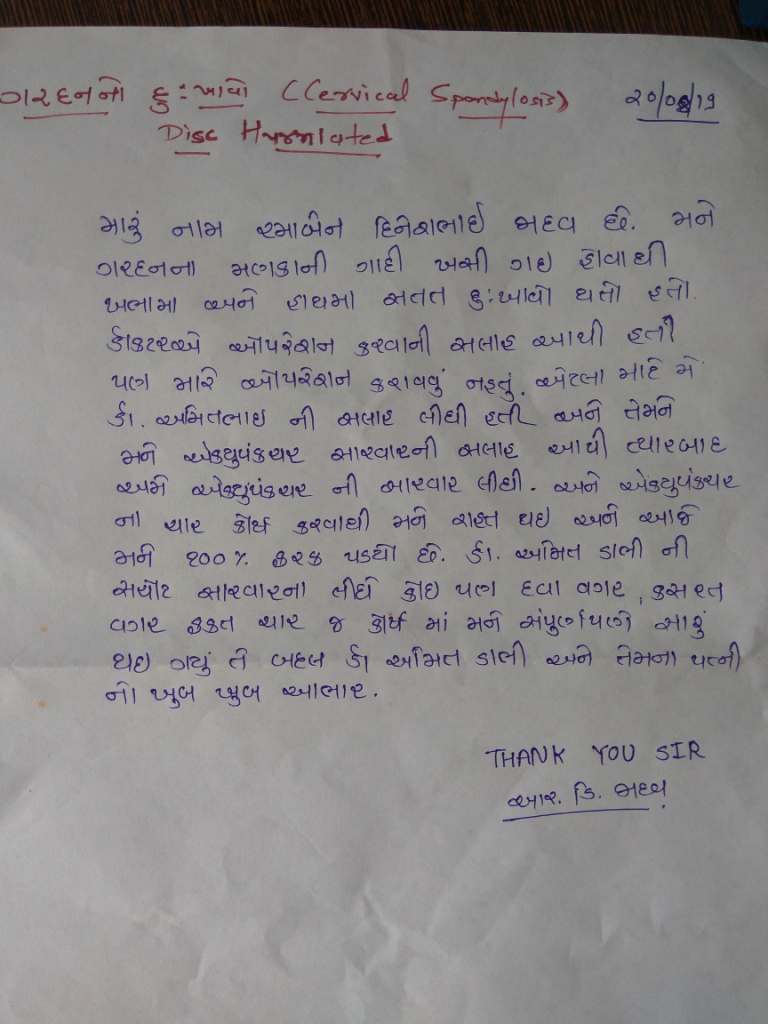 ગરદનનો દુઃખાવો (Cervical Spondylosis) ૨૦/૦૬/૧૯
Disc Hurniated
મારું નામ રમાબેન દિનેશભાઈ મઢવ છે. મને
ગરદનના મણકાની ગાદી ખસી ગઇ હોવાથી
ખભામા અને હાથમા સતત દુઃખાવો થતો હતો.
ડૉકટરએ ઓપરેશન કરવાની સલાહ આપી હતી
પણ મારે ઓપરેશન કરાવવું નહતું. એટલા માટે મેં
ડૉ. અમિતભાઇ ની સલાહ લીધી હતી અને તેમને
મને એક્યુપંકચર સારવારની સલાહ આપી ત્યારબાદ
અમે એક્યુપંકચર ની સારવાર લીધી. અને એક્યુપંકચર
ના ચાર કોર્ષ કરવાથી મને રાહત થઇ અને આજે
મને ૧૦૦% ફરક પડયો છે. ડૉ. અમિત ડાભી ની
સચોટ સારવારના લીધે કોઇ પણ દવા વગર, કસરત
વગર ફકત ચાર જ કોર્ષ માં મને સંપુર્ણપણે સારું
થઇ ગયું તે બદલ ડૉ અમિત ડાભી અને તેમના પત્ની
નો ખુબ ખુબ આભાર.
THANK YOU SIR
આર. ડિ. મઢવ